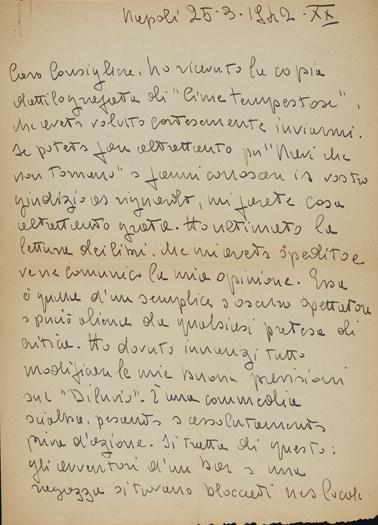 Napoli 25-3-1942-XX
Caro Consigliere, ho ricevuto la copia
dattilografata di "Cime tempestose",
che avete voluto cortesemente inviarmi.
Se potete fare altrettanto per "Nevi che
non tornano" e farmi conoscere il vostro
giudizio al riguardo, mi farete cosa
altrettanto grata. Ho ultimato la
lettura dei libri, che mi avete spedito e
ve ne comunico la mia opinione. Essa
è quella d'un semplice e oscuro spettatore
e perciò aliena da qualsiasi pretesa di
critica. Ho dovuto innanzi tutto
modificare le mie buone previsioni
sul "Diluvio". È una commedia
scialba, pesante e assolutamente
priva d'azione. Si tratta di questo:
gli avventori d'un bar e una
ragazza si trovano bloccati nel locale